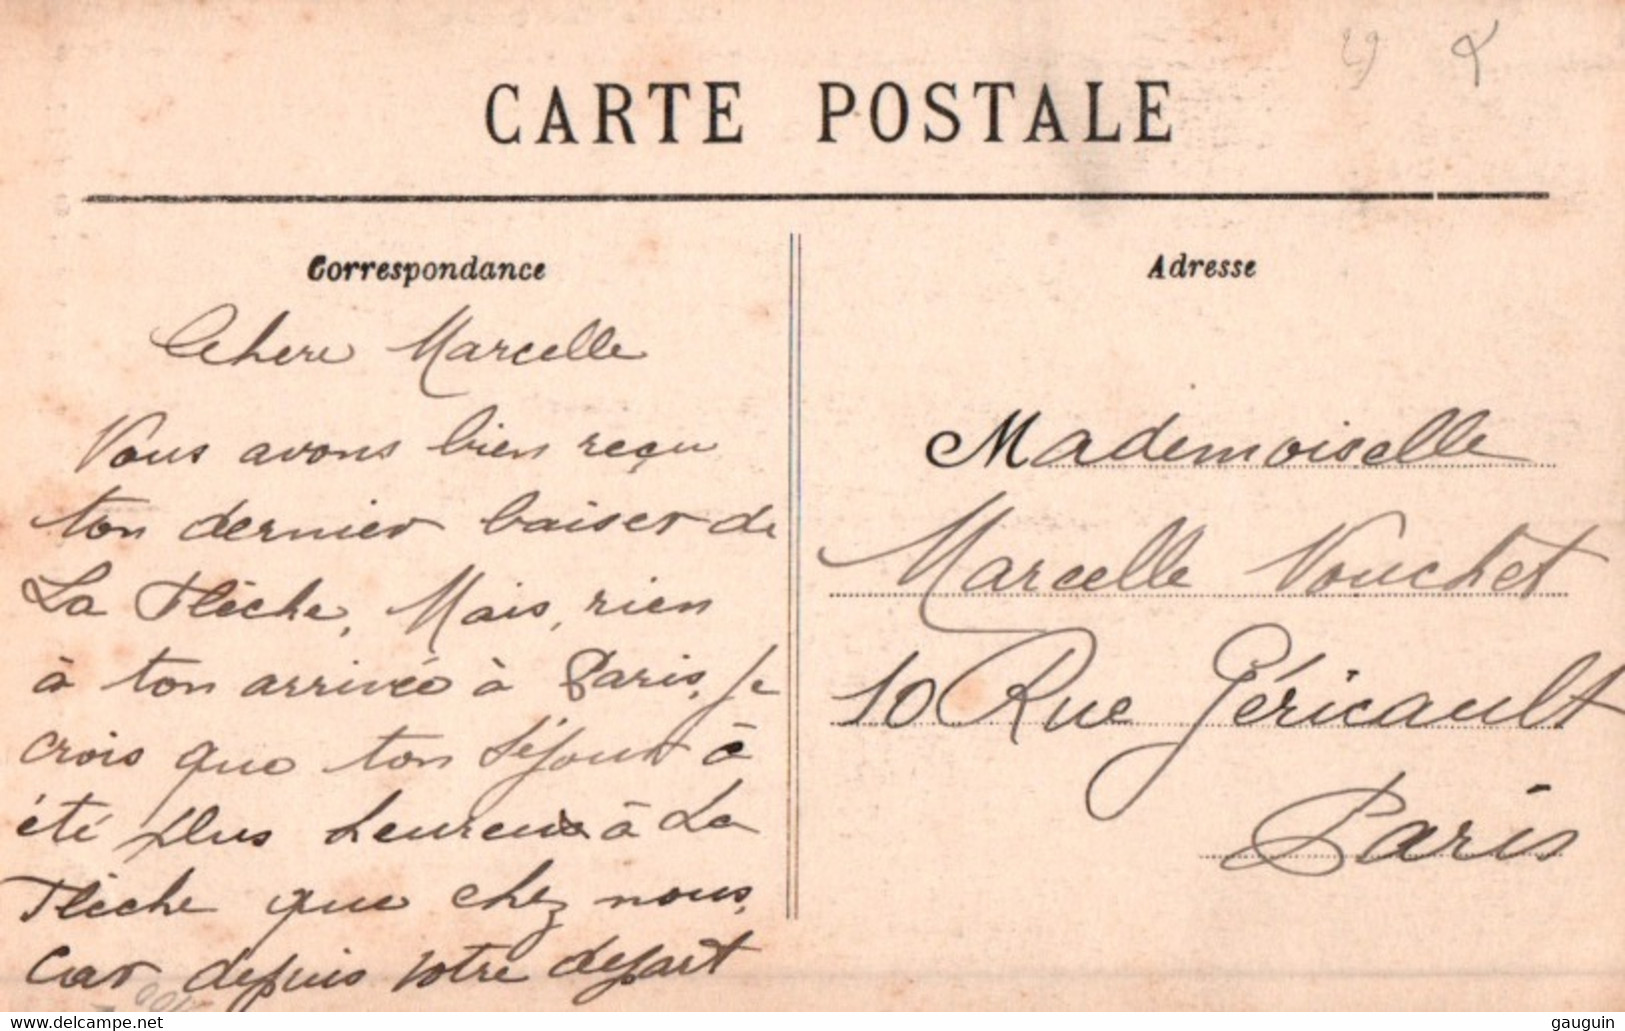 CARTE POSTALE
Correspondance
Chere Marcelle
Nous avons bien reçu
ton dernier baiser de
La Flèche, Mais, rien
à ton arrivée à Paris, je
crois que ton séjour à
été plus heureux à La
Flèche que chez nous,
Car depuis votre depart
Adresse
Mademoiselle
Marcelle Vouchet
10 Rue Géricault
Paris
delcampe.net
gauguin